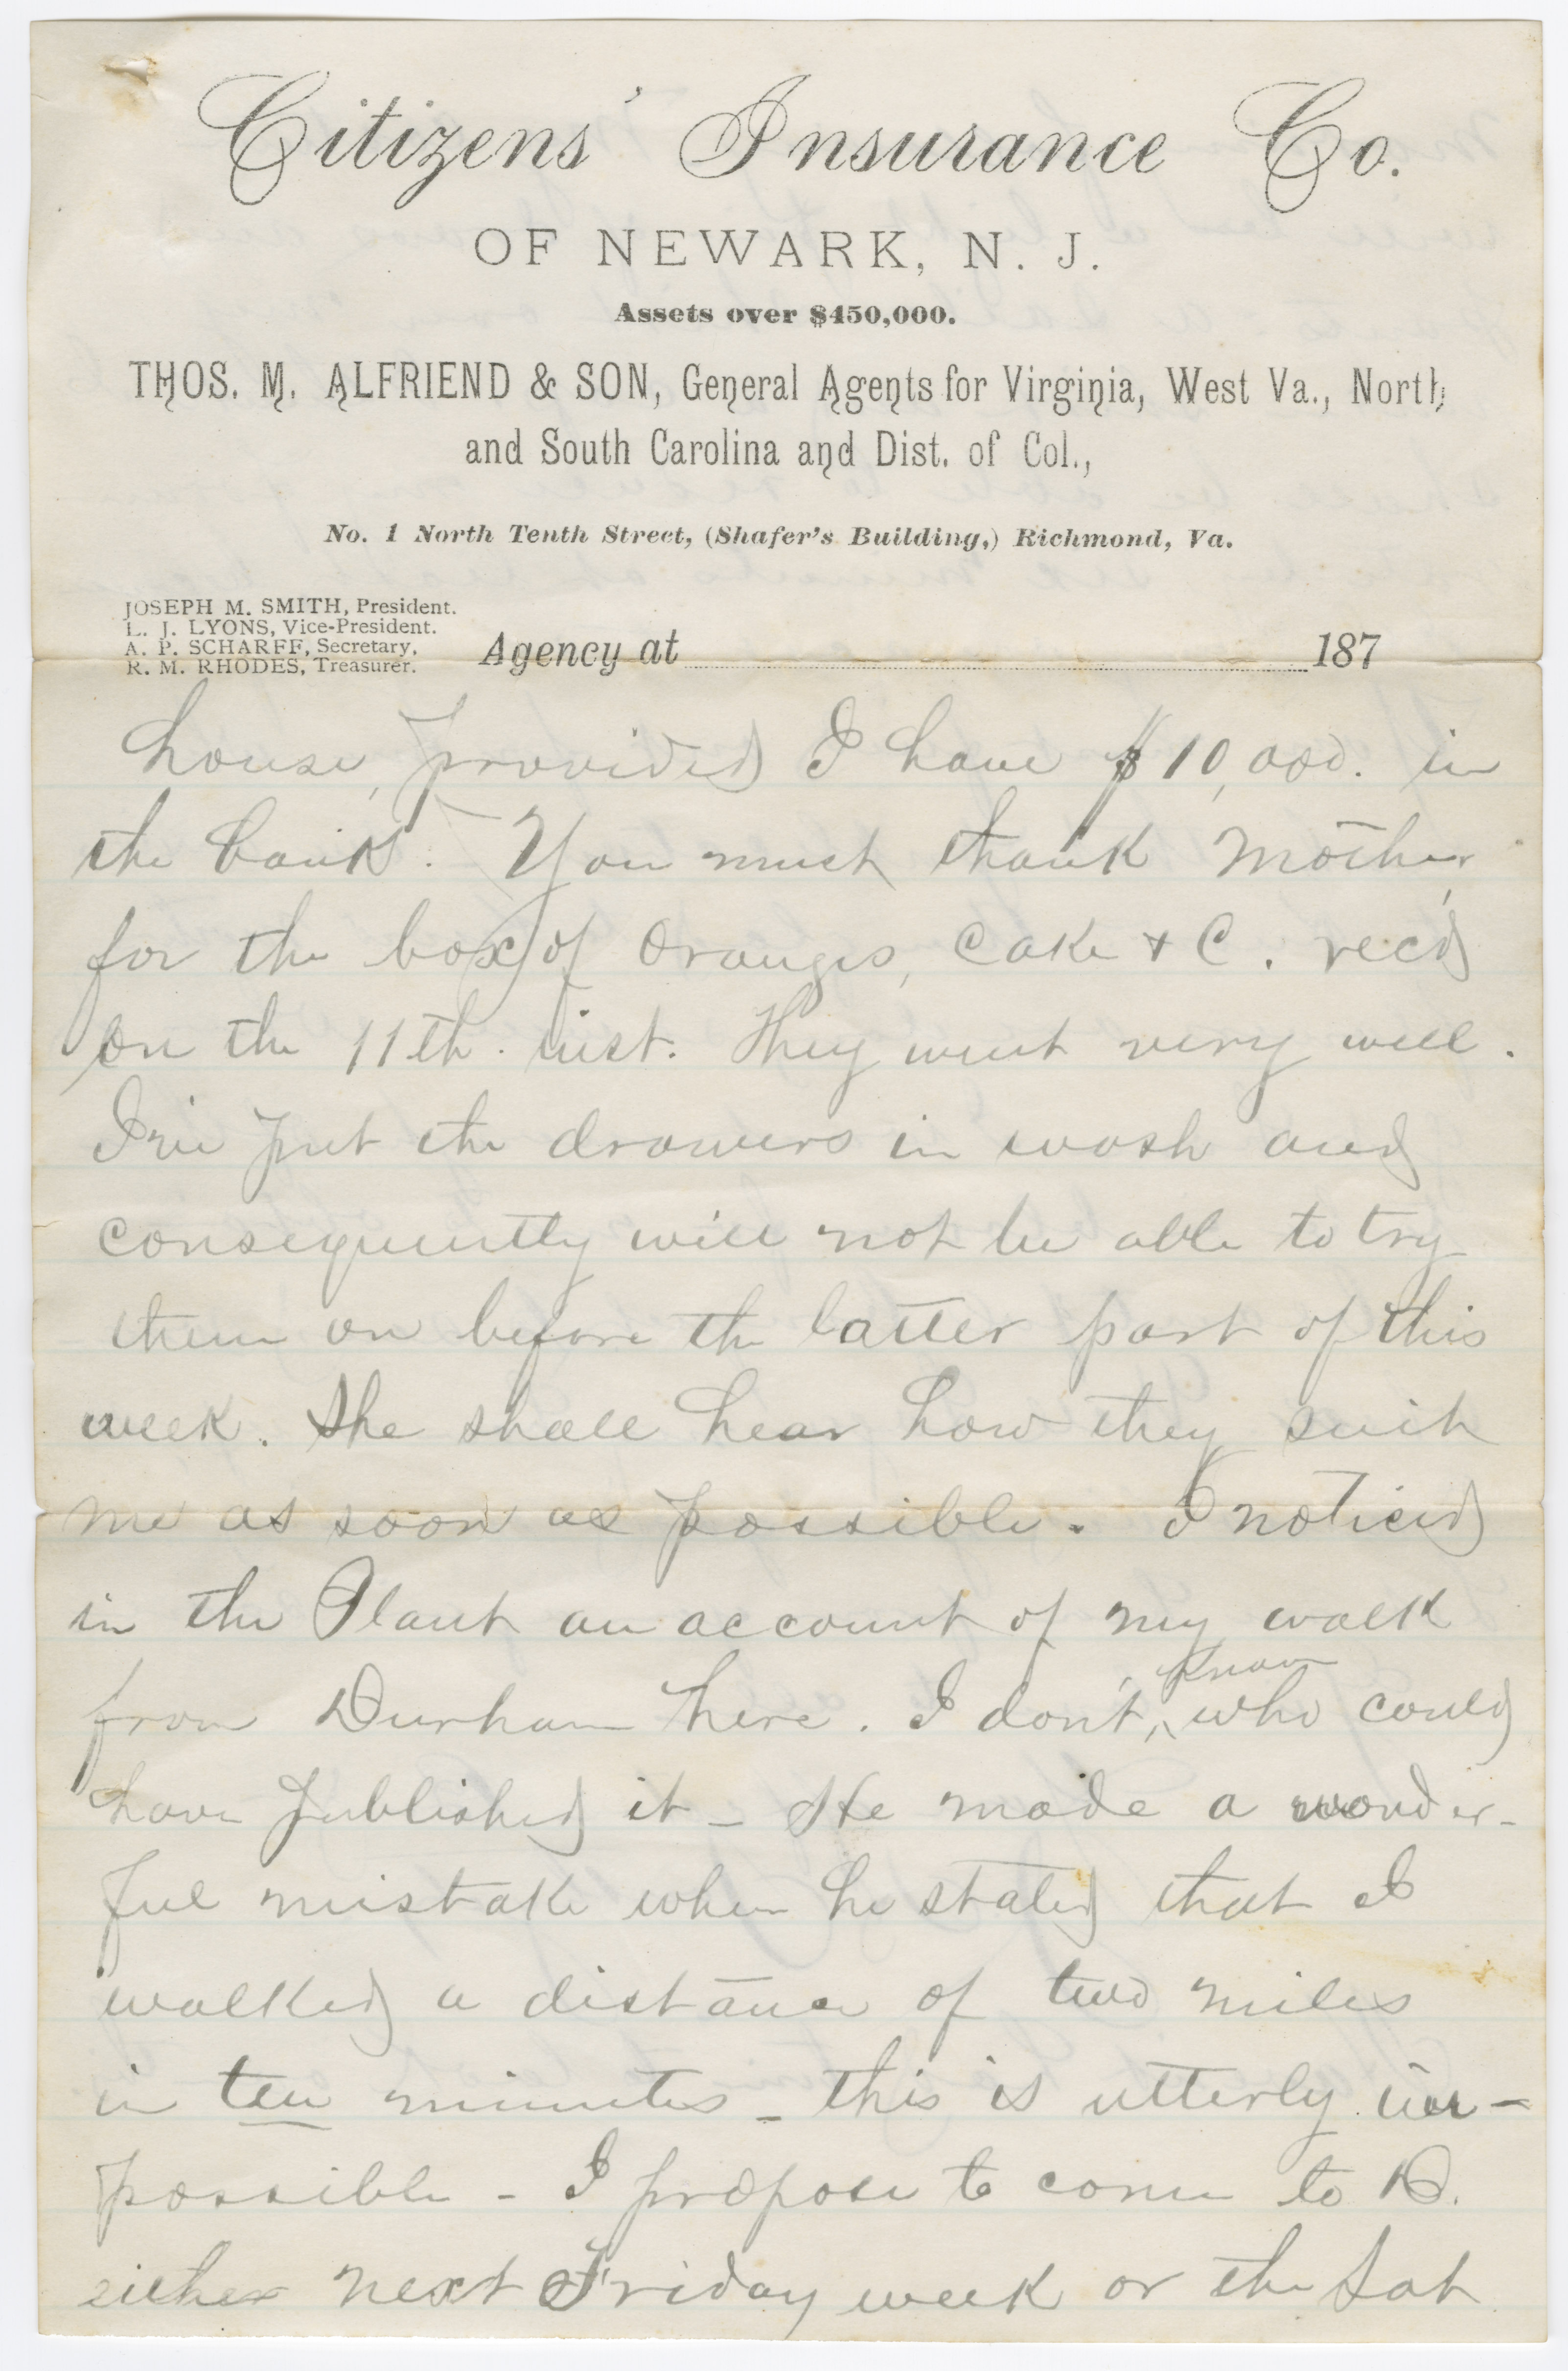 Citizens' Insurance Co.
OF NEWARK, N. J.
Assets over $450,000.
THOS. M. ALFRIEND & SON, General Agents for Virginia, West Va., North
and South Carolina and Dist. of Col.,
No. 1 North Tenth Street, (Shafer's Building,) Richmond, Va.
JOSEPH M. SMITH, President.
L. J. LYONS, Vice-President.
A. P. SCHARFF, Secretary,
R. M. RHODES, Treasurer.
Agency at 187
house, provided I have $10,000. in
the bank. You must thank Mother,
for the box of Oranges, Cake & C. rec'd
on the 11th. inst. They went very well.
I've put the drawers in wash and
consequently will not be able to try
them on before the latter part of this
week. She shall hear how they suit
me as soon as possible. I noticed
in the Plant an account of my walk
from Durham here. I don't, know who could
have published it - He made a wonder-
ful mistake when he stated that I
walked a distance of two miles
in ten minutes - this is utterly im-
possible - I propose to come to D.
either next Friday week or the Sat